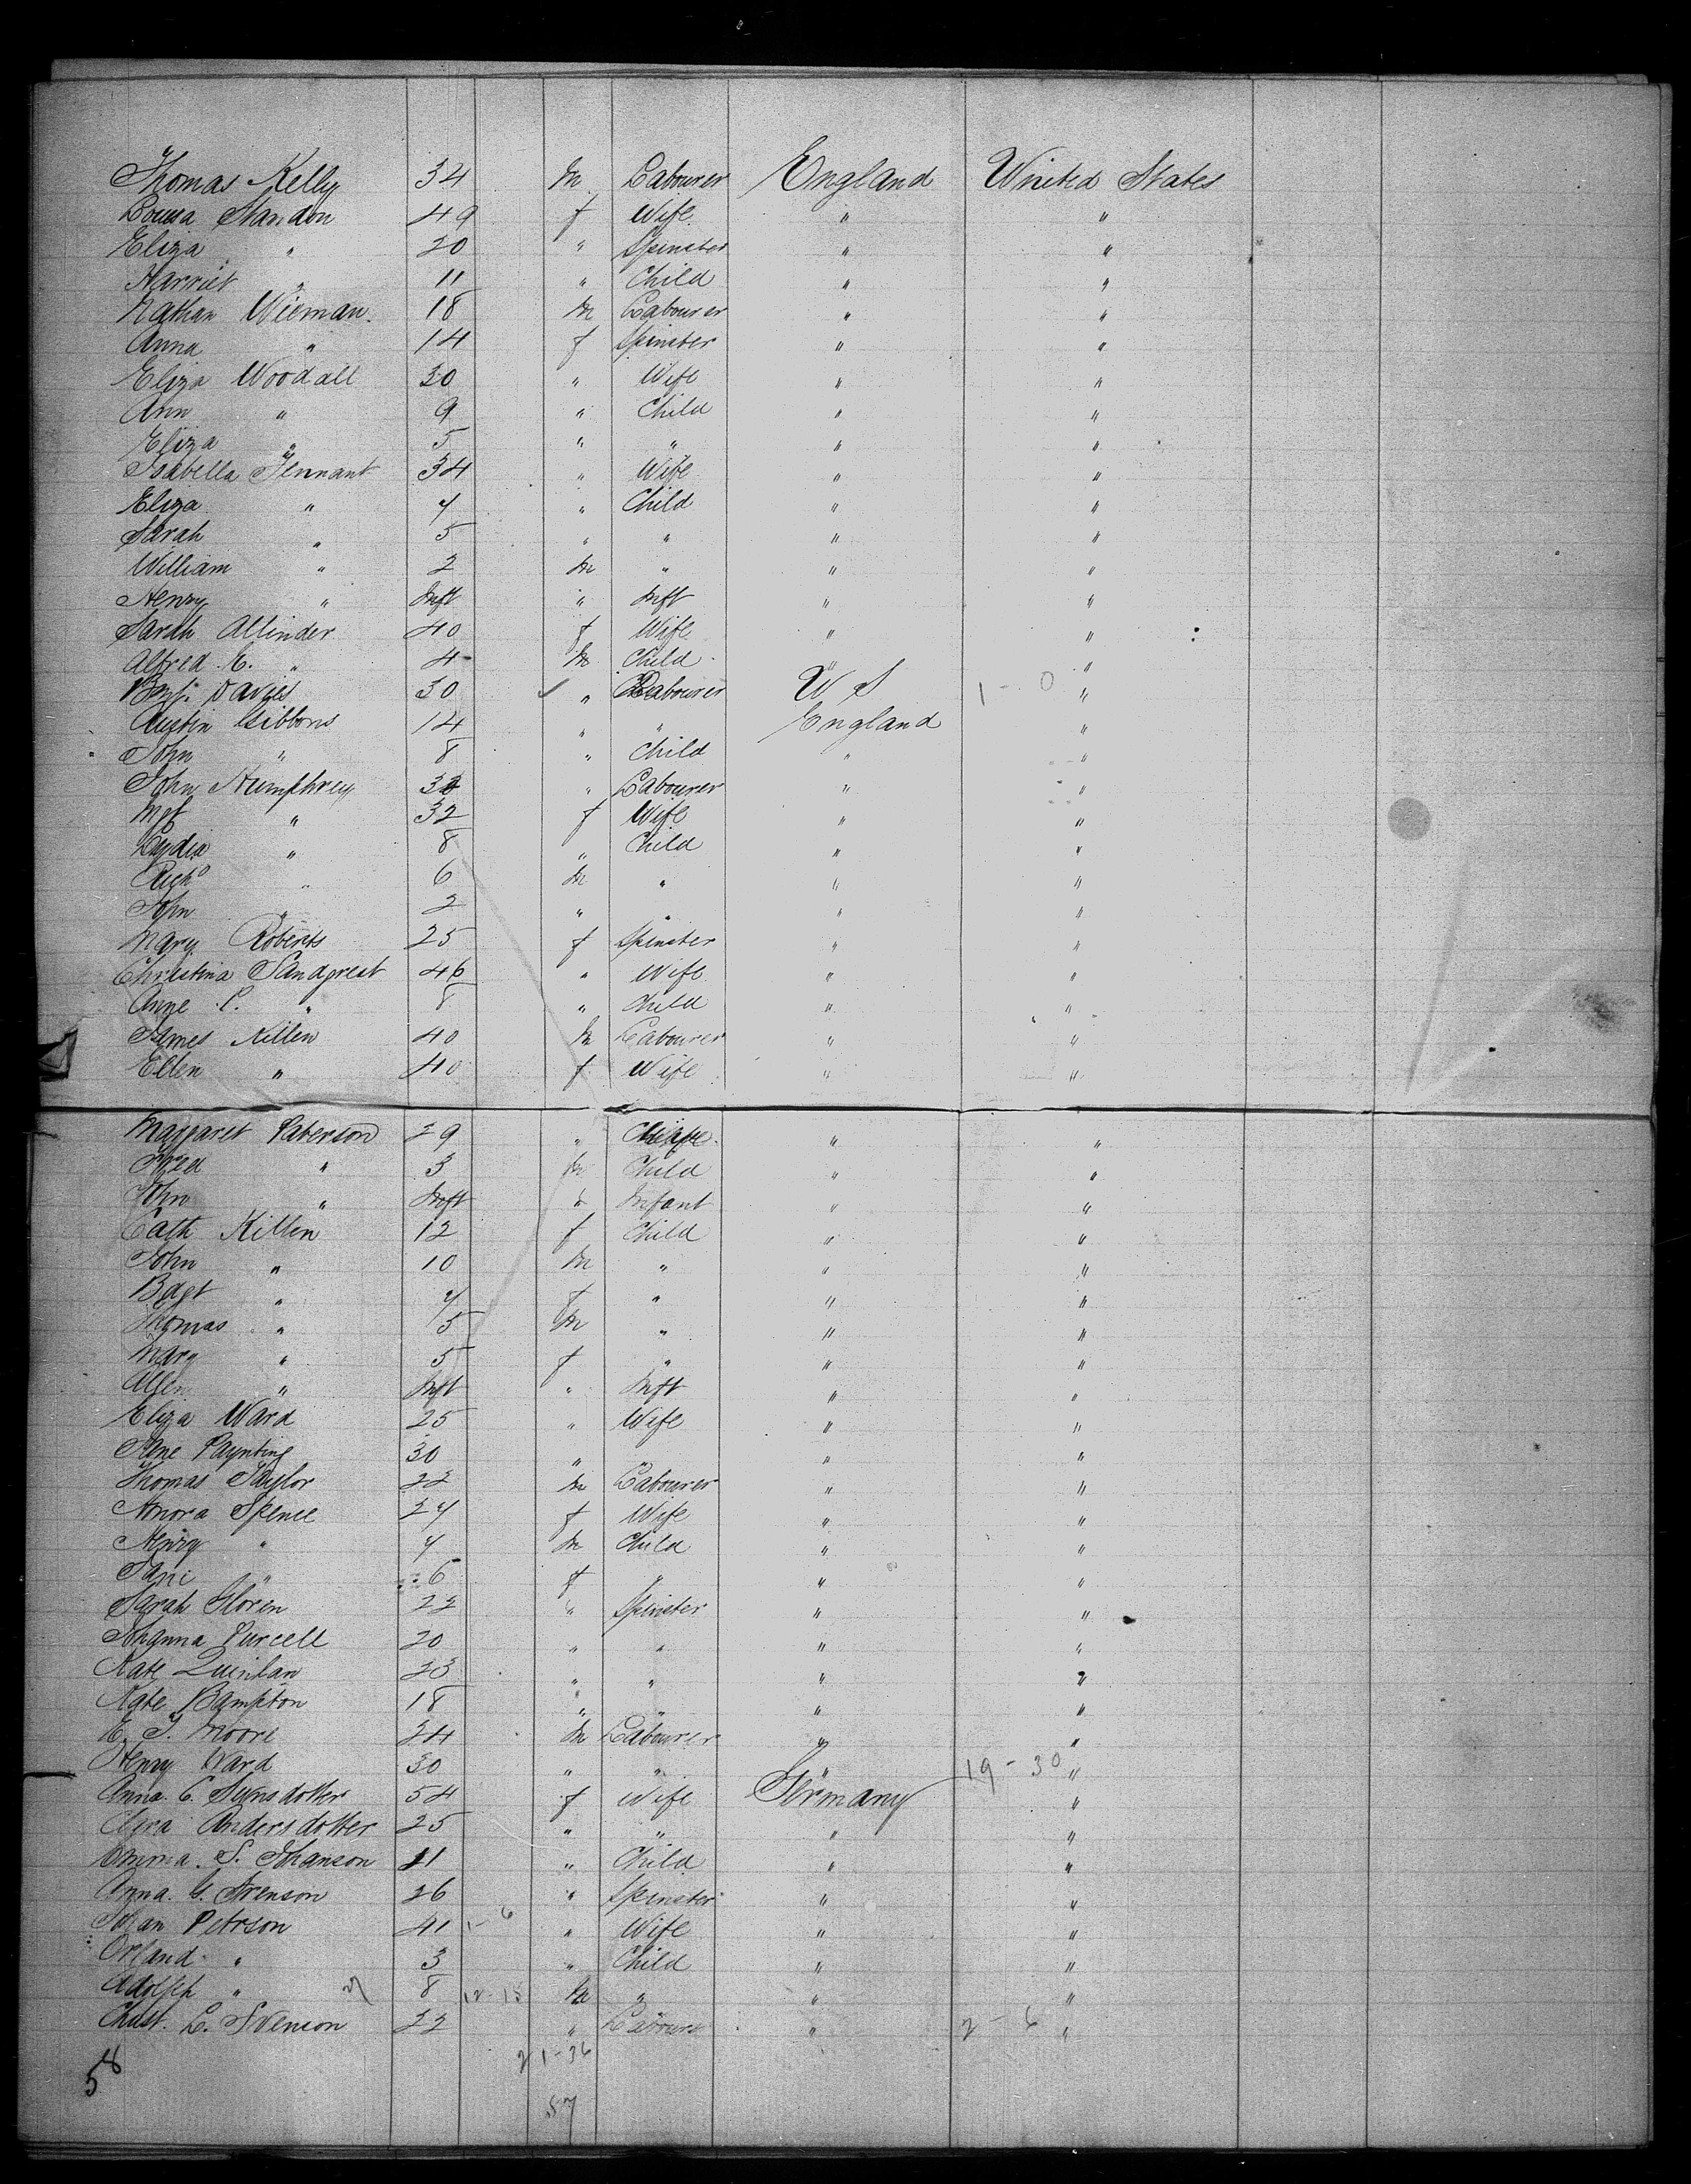 Thomas Kelly 34 m Labourer England United States
Louisa Standon 49 f Wife " "
Eliza " 20 " Spinster " "
Harriet " 11 " Child " "
Nathan Wieman. 18 m Labourer " "
Anna " 14 f Spinster " "
Eliza Woodall 30 " Wife " "
Ann " 9 " Child " "
Eliza " 5 " " " "
Isabella Tennant 34 " Wife " "
Eliza " 7 " Child " "
Sarah " 5 " " " "
William " 2 m " " "
Henry " Inft " Inft " "
Sarah Allinder 40 f Wife " "
Alfred E. " 4 m Child " "
Benj. Davies 30 " Labourer U S 1 - 0 "
Austin Gibbons 14 " " England "
John " 8 " Child " "
John Humphrey 32 " Labourer " "
Mgt " 32 f Wife " "
Lydia " 8 " Child " "
Richd " 6 m " " "
John " 2 " " " "
Mary Roberts 25 f Spinster " "
Christina Sandgrest 46 " Wife " "
Anne C. " 8 " Child " "
James Killen 40 m Labourer " "
Ellen " 40 f Wife " "
Margaret Paterson 29 " Wife " "
Fred " 3 m Child " "
John " Inft " Infant " "
Cath Killen 12 f Child " "
John " 10 m " " "
Bdgt " 7 f " " "
Thomas " 5 m " " "
Mary " 5 f " " "
" Inft " Inft " "
Eliza Ward 25 " Wife " "
Jane Paynting 30 " " "
Thomas Taylor 22 m Labourer " "
Honora Spence 27 f Wife " "
Henry " 7 m Child " "
Jane " 6 f " " "
Sarah Floren 22 " Spinster " "
Johanna Purcell 20 " " " "
Kate Quinlan 23 " " " "
Kate Bampton 18 " " " "
E. J. Moore 24 m Labourer " "
Henry Ward 30 " " " 19 - 30 "
Anna C. Svensdotter 54 f Wife Germany "
Clara Andersdotter 25 " " " "
Emma. S. Johanson 11 " Child " "
Anna. G. Svenson 26 " Spinster " "
Johan Petrson 41 1 - 6 " Wife " "
Orland " 3 " Child " "
Adolph " 8 12 - 15 m " " "
Christ. L. Svenson 22 " Labourer " 2 - 6 "
21 - 36
58
57